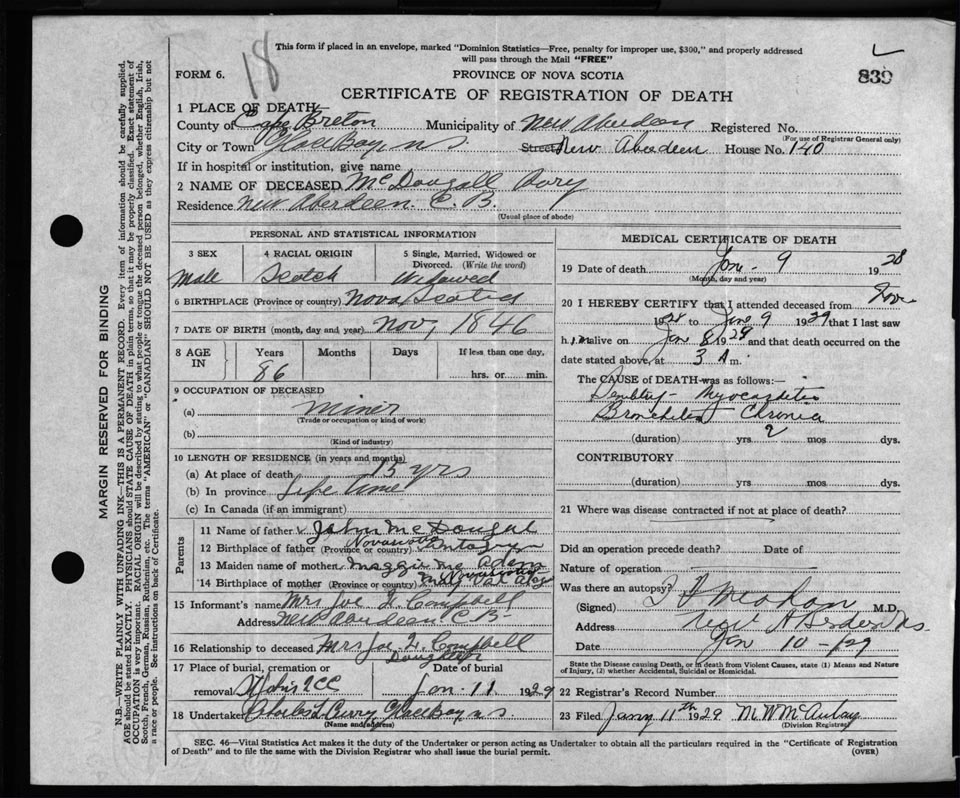 This form if placed in an envelope, marked "Dominion Statistics—Free, penalty for improper use, $300," and properly addressed
will pass through the Mail "FREE"
18
839
FORM 6.
PROVINCE OF NOVA SCOTIA
CERTIFICATE OF REGISTRATION OF DEATH
1 PLACE OF DEATH—
County of Cape Breton Municipality of New Aberdeen Registered No.
(For use of Registrar General only)
City or Town Glace Bay N S Street New Aberdeen House No. 140
If in hospital or institution, give name
2 NAME OF DECEASED McDougall Rory
Residence New Aberdeen C. B.
(Usual place of abode)
PERSONAL AND STATISTICAL INFORMATION
3 SEX 4 RACIAL ORIGIN 5 Single, Married, Widowed or Divorced. (Write the word)
Male Scotch Widowed
6 BIRTHPLACE (Province or country) Nova Scotia
7 DATE OF BIRTH (month, day and year) Nov, 1846
8 AGE IN Years Months Days If less than one day,
86 hrs. or min.
9 OCCUPATION OF DECEASED
(a) Miner
(Trade or occupation or kind of work)
(b)
(Kind of industry)
10 LENGTH OF RESIDENCE (in years and months)
(a) At place of death 15 yrs
(b) In province Life time
(c) In Canada (if an immigrant)
Parents
11 Name of father John McDougal
12 Birthplace of father (Province or country) Nova Scotia
13 Maiden name of mother Maggie Mc Adam
14 Birthplace of mother (Province or country)
15 Informant's name Mrs Joe L. Campbell
Address New Aberdeen C B-
16 Relationship to deceased Mrs Joe L. Campbell
Daughter
17 Place of burial, cremation or removal Date of burial
Jan. 11 1929
18 Undertaker Charles L Curry Glace Bay N S.
(Name and address)
MEDICAL CERTIFICATE OF DEATH
19 Date of death Jan. 9 1928
(Month, day and year)
20 I HEREBY CERTIFY that I attended deceased from Nov
1928 to Jan 9 1929 that I last saw
h im alive on Jan 8 1929 and that death occurred on the
date stated above, at 3 A m.
The CAUSE of DEATH was as follows:—
Senility - Myocarditis
Bronchitis Chronic
(duration) yrs 2 mos dys.
CONTRIBUTORY
(duration) yrs. mos. dys.
21 Where was disease contracted if not at place of death?
Did an operation precede death? Date of
Nature of operation
Was there an autopsy?
(Signed) M.D.
Address New Aberdeen NS.
Date Jan 10 - 29
State the Disease causing Death, or in death from Violent Causes, state (1) Means and Nature
of Injury, (2) whether Accidental, Suicidal or Homicidal.
22 Registrar's Record Number
23 Filed Jany 11th 1929 M W McAulay
(Division Registrar)
SEC. 46—Vital Statistics Act makes it the duty of the Undertaker or person acting as Undertaker to obtain all the particulars required in the "Certificate of Registration
of Death" and to file the same with the Division Registrar who shall issue the burial permit. (OVER)
MARGIN RESERVED FOR BINDING
N.B.—WRITE PLAINLY WITH UNFADING INK—THIS IS A PERMANENT RECORD. Every item of information should be carefully supplied.
AGE should be stated EXACTLY. PHYSICIANS should STATE CAUSE OF DEATH in plain terms, so that it may be properly classified. Exact statement of
OCCUPATION is very important. RACIAL ORIGIN will be described by stating to what people or tongue the deceased person belonged, whether English, Irish,
Scotch, French, German, Russian, Ruthenian, etc. The terms "AMERICAN" or "CANADIAN" SHOULD NOT BE USED as they express citizenship but not
a race or people. See instructions on back of Certificate.